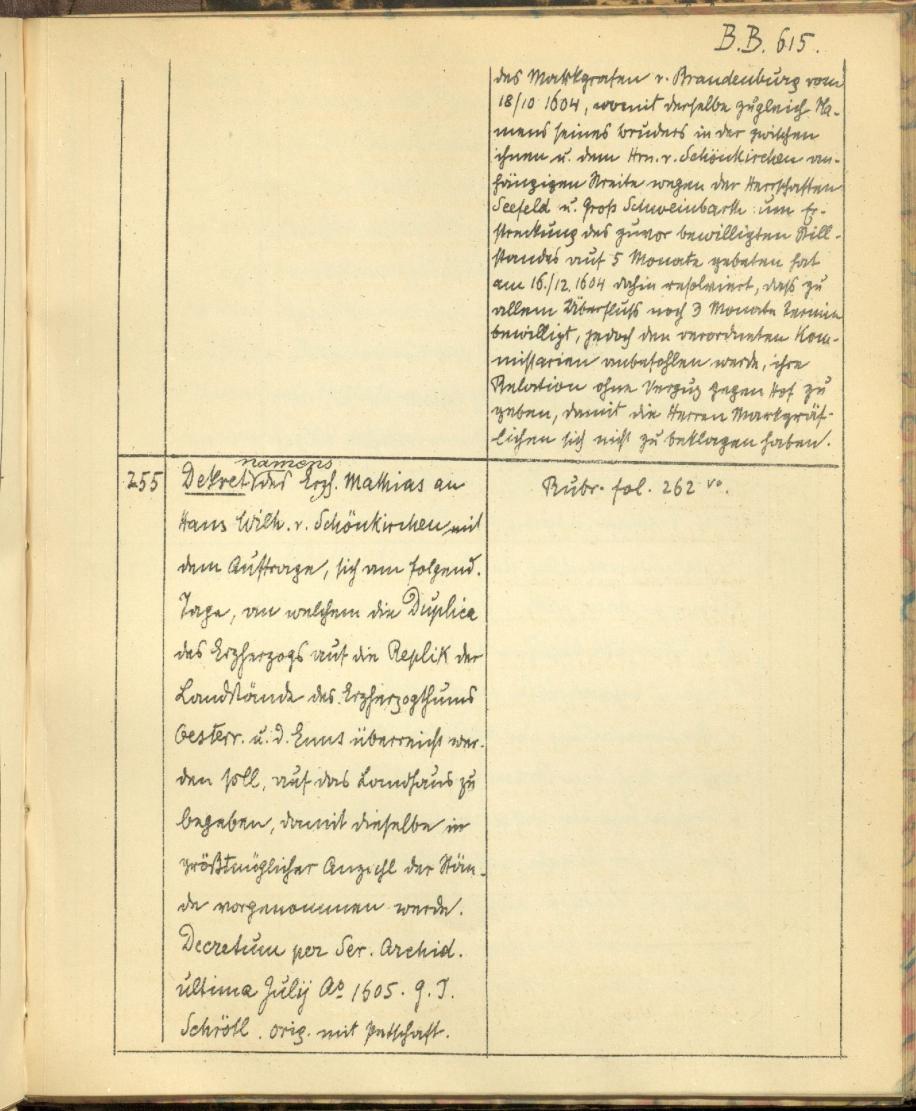 B.B. 615.
des Markgrafen v. Brandenburg vom
18/10 1604, womit derselbe zugleich Na-
mens seines Bruders in der zwischen
ihnen u. dem Hrn. v. Schönkirchen an-
hängigen Streite wegen der Herrschaften
Seefeld u. Groß Schweinbarth um Er-
streckung des zuvor bewilligten Still-
standes auf 5 Monate gebeten hat
am 16./12. 1604 dahin resolviert, daß zu
allem Überfluß noch 3 Monate Termin
bewilligt, jedoch den verordneten Kom-
missarien anbefohlen werde, ihre
Relation ohne Verzug gegen Hof zu
geben, damit die Herren Markgräf-
lichen sich nicht zu beklagen haben.
255
namens
Dekret des Erzh. Mathias an
Hans Wilh. v. Schönkirchen mit
dem Auftrage, sich am folgend.
Tage, an welchem die Duplica
des Erzherzogs auf die Replik der
Landstände des Erzherzogthums
Oesterr. u. d. Enns überreicht wer-
den soll, auf das Landhaus zu
begeben, damit dieselbe in
größtmöglicher Anzahl der Stän-
de vorgenommen werde.
Decretum per Ser. Archid.
ultima Julij Ao 1605. J.
Schrötl. orig. mit Petschaft.
Rubr. fol. 262 vo.